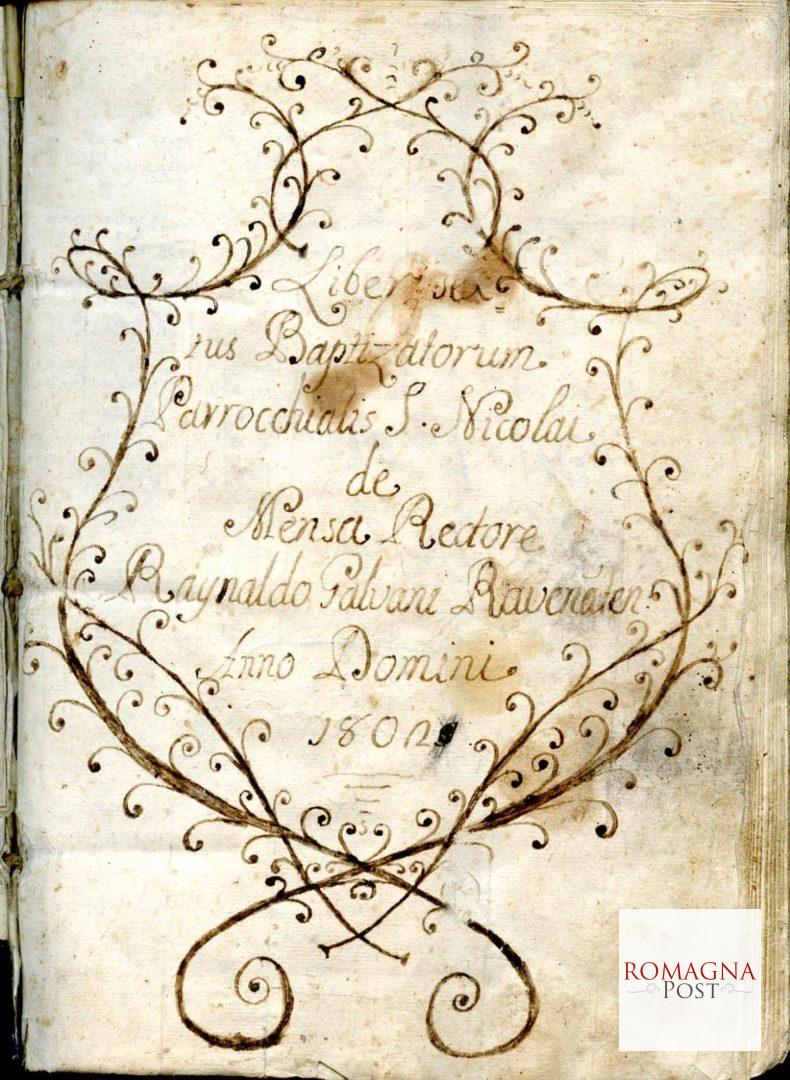 Liber sex=
tus Baptizatorum
Parrocchialis S. Nicolai
de
Mensa Rectore
Raynaldo Galvani Ravenaten
Anno Domini
1802
ROMAGNA
POST